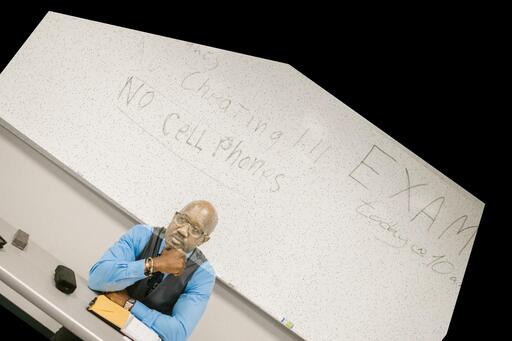 Cheating!!!
NO Cell phones
EXAM
today@10a